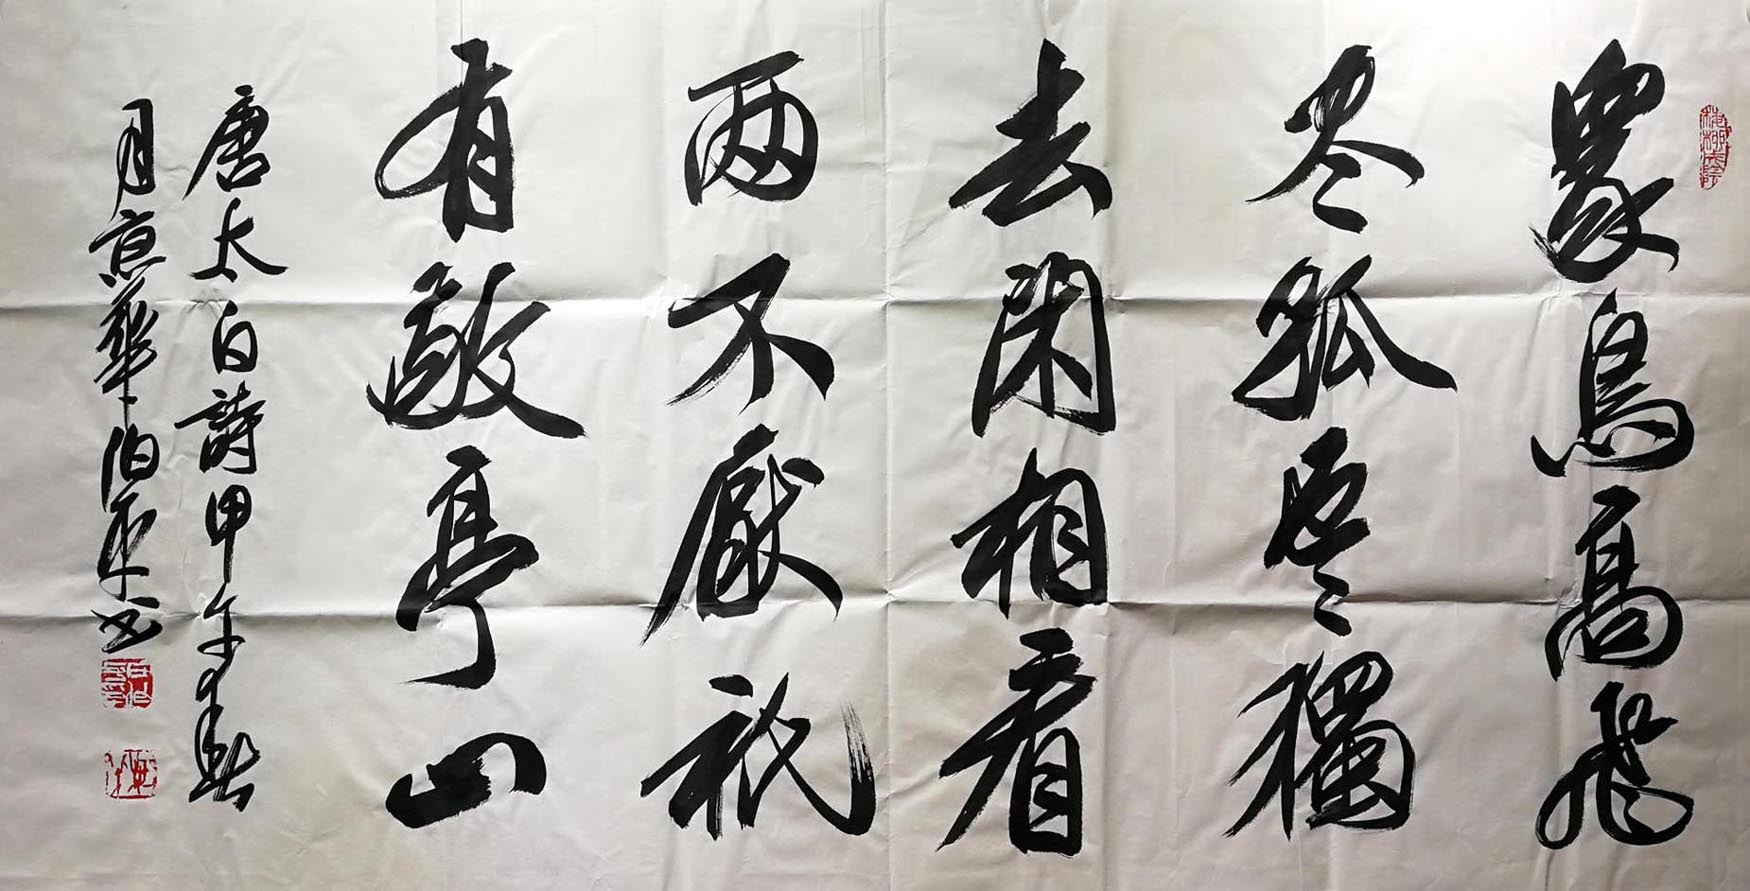 衆鳥高飛
尽孤雲獨
去閑相看
两不厭祇
有敬亭山
唐太白詩甲午
月京華伯书